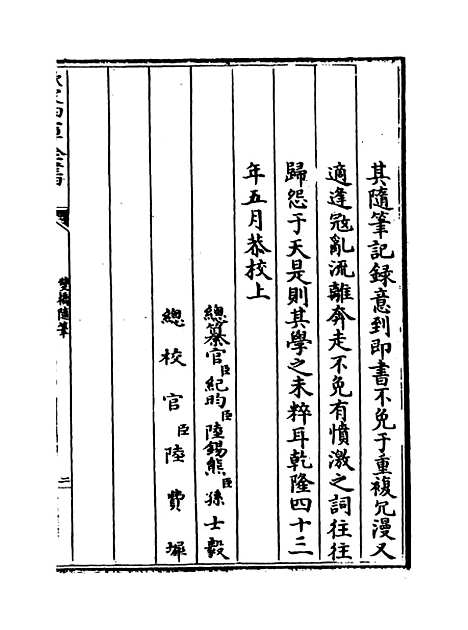 其隨筆記録意到即書不免于重複冗漫又
適逢冦亂流離奔走不免有憤激之詞往往
歸怨于天是則其學之未粹耳乾隆四十三
年五月恭校上
總纂官臣紀昀臣陸錫熊臣孫士毅
總校官臣陸費墀
雙橋隨筆
二